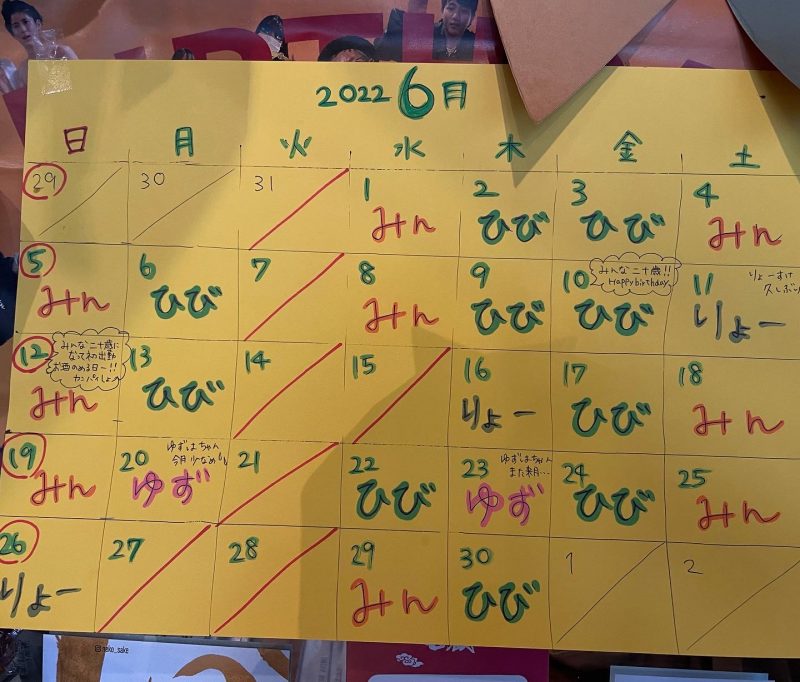 2022 6月
日 月 火 水 木 金 土
29 30 31 1 2 3 4
みん ひび ひび みん
5 6 7 8 9 10 11
みんな二十歳!!
Happy birthday
りょーすけ
みん ひび みん ひび ひび りょー
12 13 14 15 16 17 18
みんな二十歳に
なって初出勤
お酒のめる日〜!!
カンパイしよ
みん ひび りょー ひび みん
19 20 21 22 23 24 25
ゆずはちゃん
今月少なめ
ゆずはちゃん
また来月…
みん ゆず ひび ゆず ひび みん
26 27 28 29 30 1 2
りょー みん ひび
@neko_sake